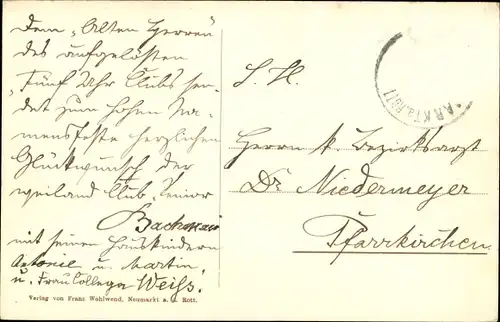 Dem „Alten Herren“
des aufgelösten
„Fünf Uhr Clubs sen-
det zum hohen Na-
mensfeste herzlichen
Glückwunsch der
weiland Club-Senior
mit seinen Hauskindern
u. Martin,
u. Frau Collega Weiß.
Verlag von Franz Wohlwend, Neumarkt a. Rott.
S. H.
Herrn k. Bezirksarzt
Dr. Niedermeyer
Pfarrkirchen